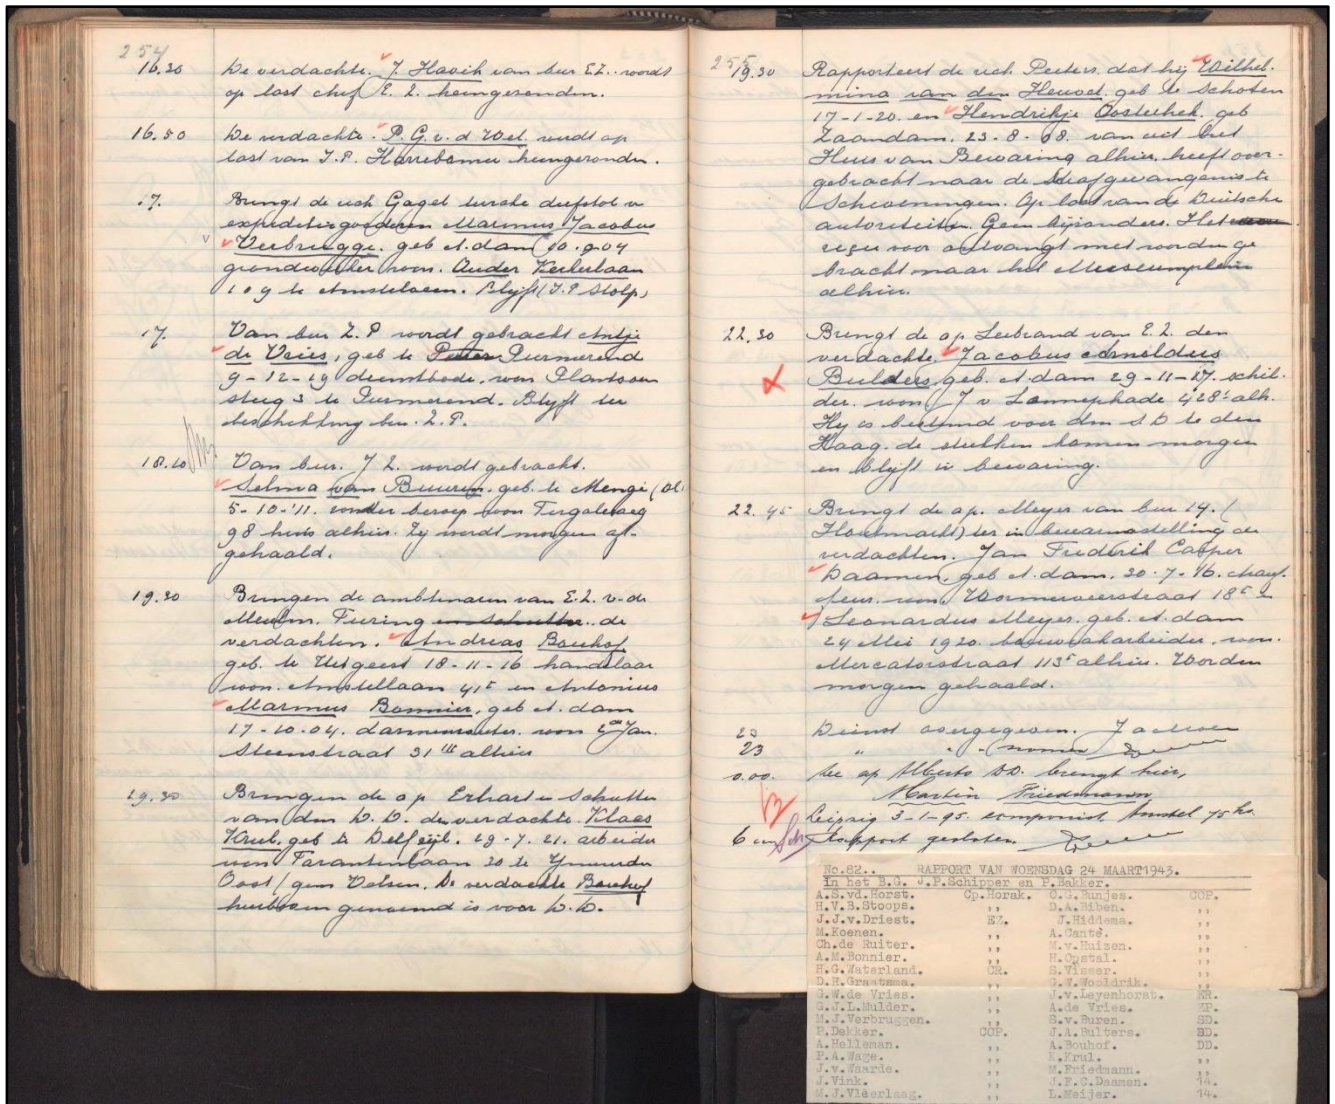 254
16.30 De verdachte. J. Havik van bur E.Z. wordt
op last chef E. Z. heengezonden.
16.50 De verdachte. P. G. v. d Wel. wordt op
last van I.P. Harrebomee heengezonden.
17. Brengt de rech Gagel terzake diefstal v
expeditiegoederen Marinus Jacobus
Verbrugge. geb A.dam 10.9.04
grondwerker woon. Ouder Kerkerlaan
109 te Amstelveen. Blijft (I.P Stolp)
17. Van bur Z.P wordt gebracht Antje
de Vries, geb te Purmerend
9-12-19 dienstbode. won Plantsoen
steeg 3 te Purmerend. Blijft ter
beschikking bur. Z.P.
18.10 Van bur. J Z. wordt gebracht.
Selma van Buuren. geb. te Mengi (
5-10-'11. zonder beroep won
98 huis alhier. Zij wordt morgen af-
gehaald.
19.20 Brengen de ambtenaren van E.Z. v. de
Meulen. Furing en Schutte.. de
verdachten. Andreas Bouhof
geb. te Uitgeest 18-11-16 handelaar
won. Amstellaan 41 en Antonius
Marinus Bonnier, geb A.dam
17-10-04. won Jan
Steenstraat 31 III alhier
19.30 Brengen de a.p Erhart en Schutte
van den D.D. de verdachte. Klaas
Krul, geb te Delfzijl. 29-7. 21. arbeider
won Tarantorlaan 20 te Ymuiden
Oost (gem Velsen. De verdachte Bouhof
hierboven genoemd is voor D.D.
255
19.30 Rapporteert de rech Peeters. dat hij Wilhel-
mina van den Heuvel. geb te Schoten
17-1-20. en Hendrikje Oosterhek. geb
Zaandam. 23-8-08. van uit het
Huis van Bewaring alhier. heeft over-
gebracht naar de Strafgevangenis te
Scheveningen. Op last van de Duitsche
autoriteiten. Geen bijzonders. Het
reçu voor ontvangst met worden ge
bracht naar het Museumplein
alhier.
22.30 Brengt de a.p. Leebrand van E.Z. den
verdachte Jacobus Arnoldus
Bulders, geb. A.dam 29-11-17. schil-
der. won J v Lennepkade 428 alh.
Hij is bestemd voor den S D te den
Haag. de stukken komen morgen
en blijft in bewaring.
22.45 Brengt de a.p. Meyer van bur 14. (
Houtmarkt) ter in bewaarstelling de
verdachten. Jan Frederik Casper
Daamen, geb A.dam. 30-7-16. chauf-
feur. won. Wormerveerstraat 18 en
Leonardus Meyer. geb. A.dam
24 Mei 1920. bouwvakarbeider, won.
Mercatorstraat 113 alhier. Worden
morgen gehaald.
23 Dienst overgegeven.
23 " " (nomen)
0.00. De ap Alberts DD. brengt hier,
Martin Friedmann
Leipzig 3-1-95. componist Amstel 75 hs
6 uur Rapport gesloten.
No.82.. RAPPORT VAN WOENSDAG 24 MAART1943.
In het B.G. J.P.Schipper en P.Bakker.
A.S.vd.Horst. Cp.Horak. O.G.Bunjes. COP.
H.V.B.Stoops. ,, D.A.Biben. ,,
J.J.v.Driest. EZ. J.Hiddema. ,,
M.Koenen. ,, A.Canté. ,,
Ch.de Ruiter. ,, M.v.Huizen. ,,
A.M.Bonnier. ,, H.Opstal. ,,
H.G.Waterland. CR. S.Visser. ,,
D.H.Graatsma. ,, G.W.Wooldrik. ,,
G.W.de Vries. ,, J.v.Leyenhorst. ER.
G.J.L.Mulder. ,, A.de Vries. ZP.
M.J.Verbruggen. ,, S.v.Buren. SD.
P.Dekker. COP. J.A.Bulters. SD.
A.Helleman. ,, A.Bouhof. DD.
P.A.Wage. ,, K.Krul. ,,
J.v.Waarde. ,, M.Friedmann. ,,
J.Vink. ,, J.F.C.Daamen. 14.
M.J.Vleerlaag. ,, L.Meijer. 14.